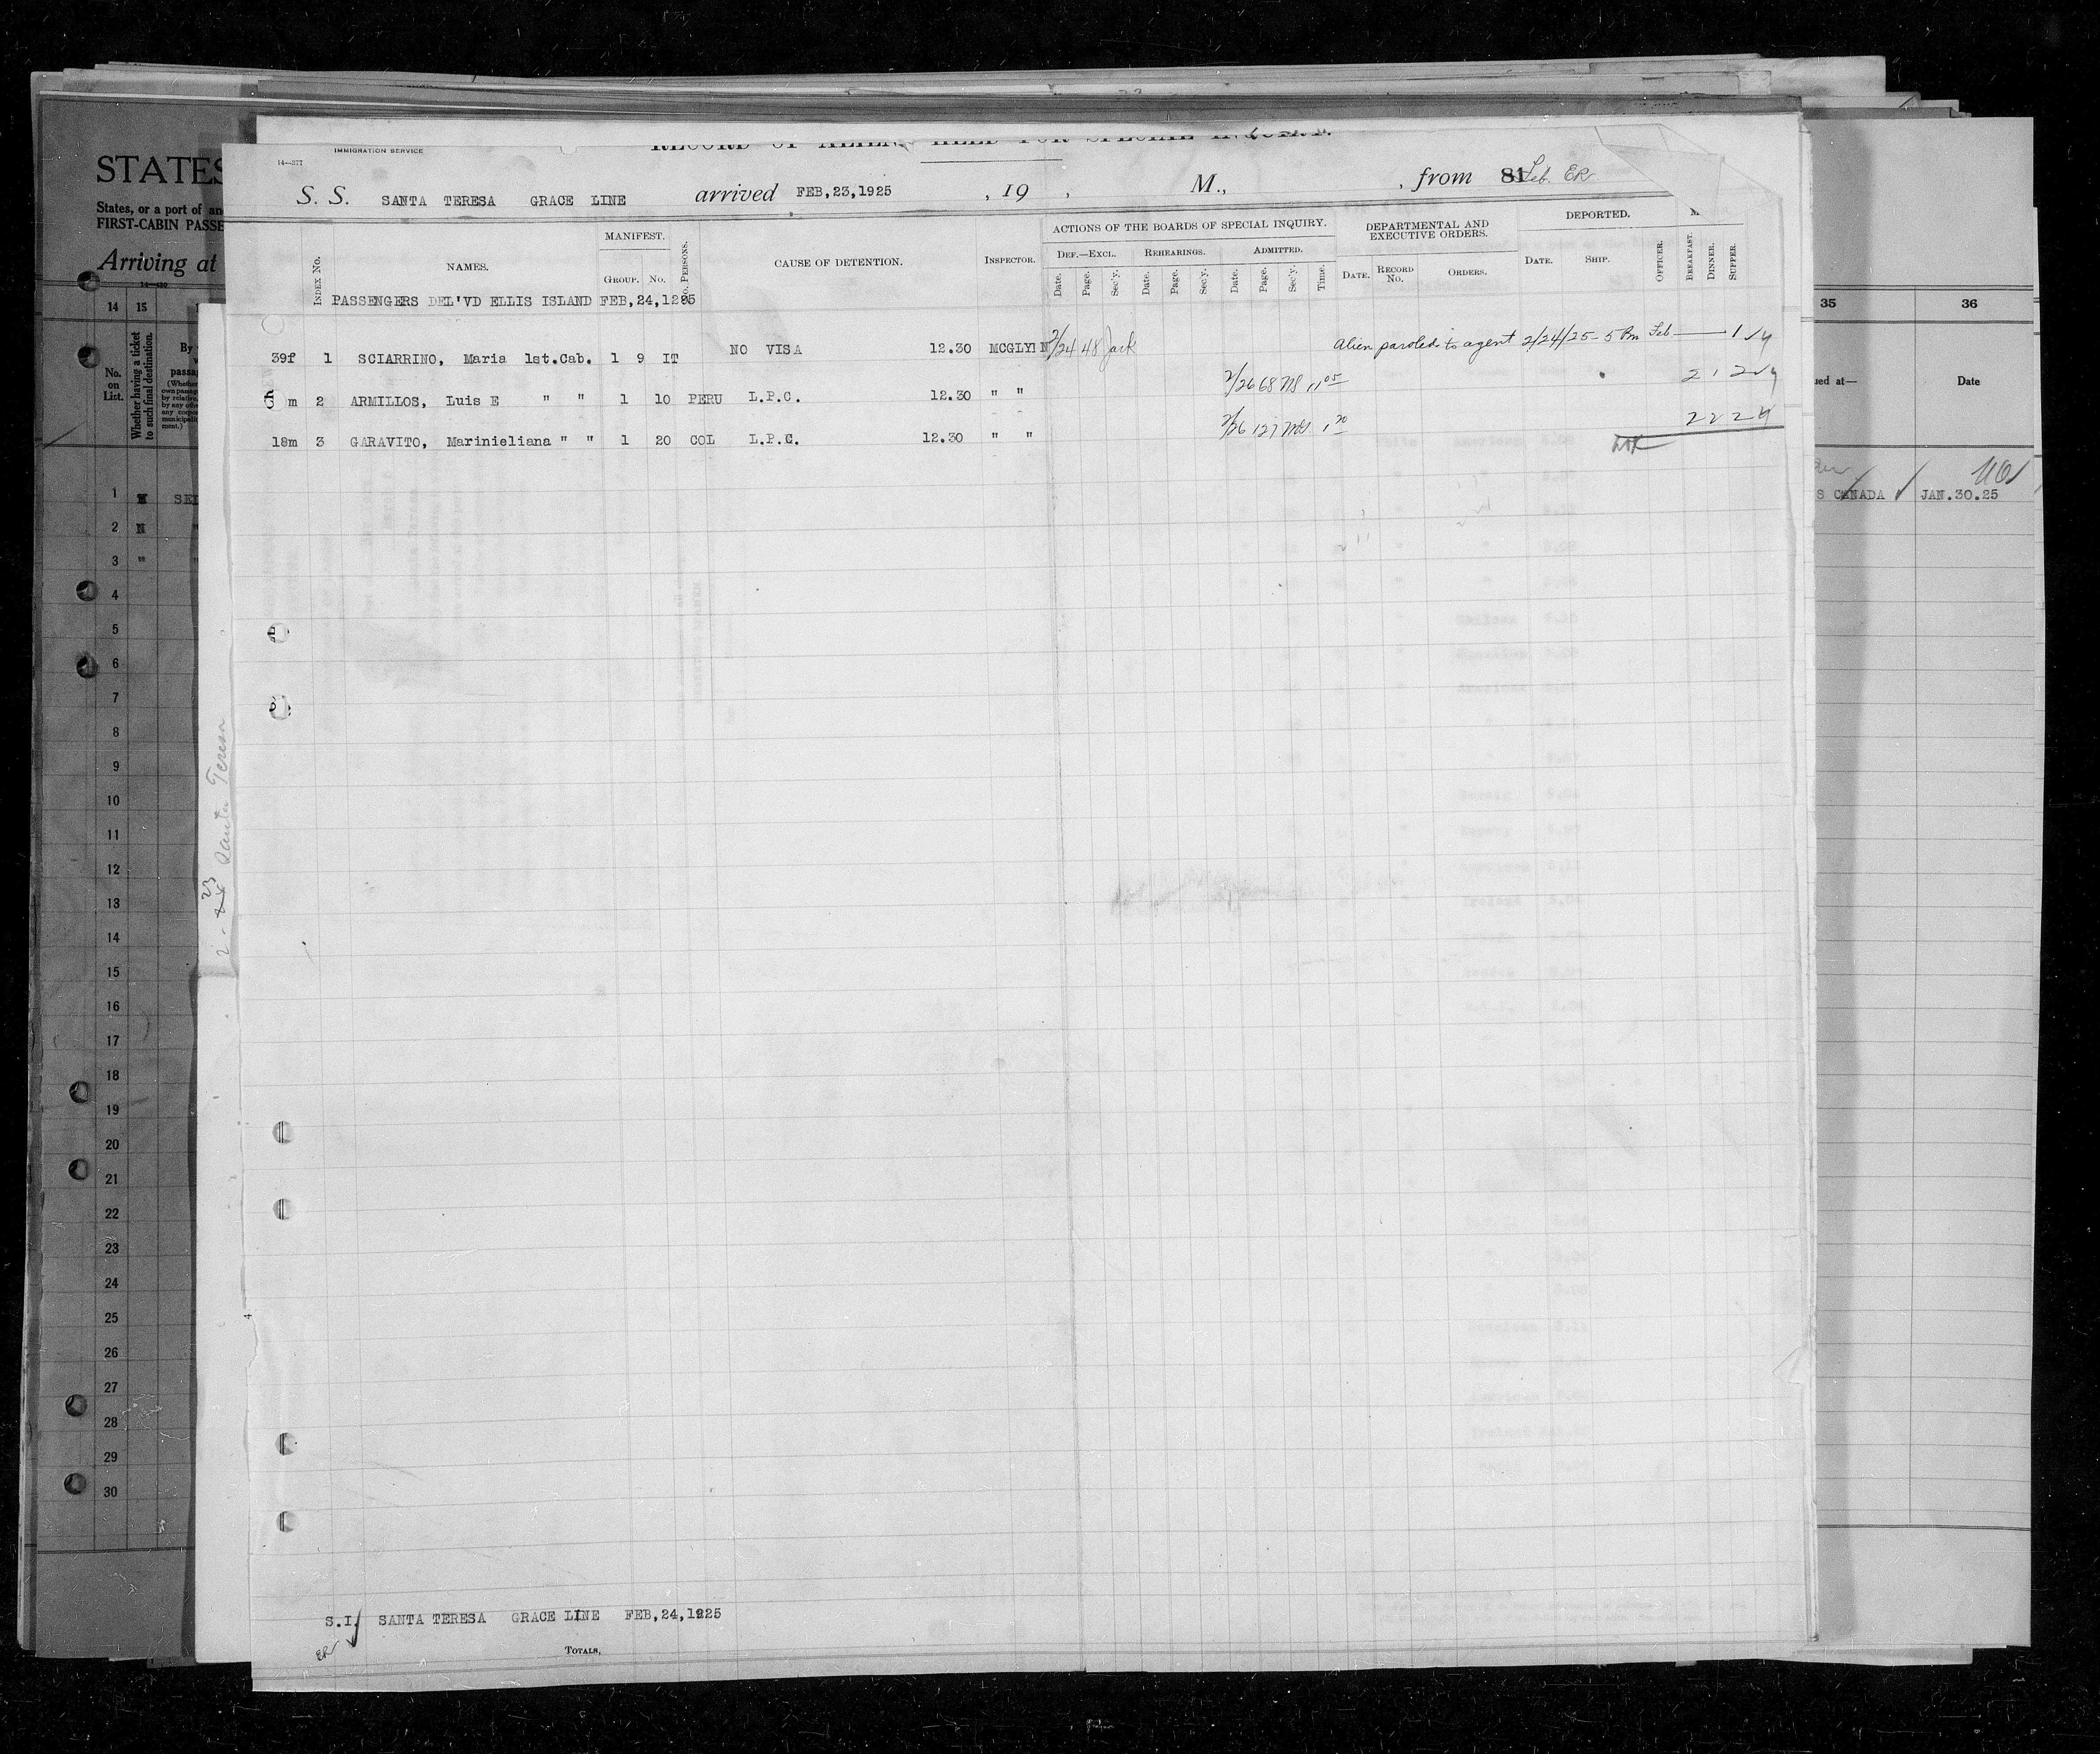 RECORD OF ALIENS HELD FOR SPECIAL INQUIRY.
IMMIGRATION SERVICE
14—377
S. S. SANTA TERESA GRACE LINE arrived FEB,23,1925 , 19 , M., , from 81 Feb. ER
INDEX No. NAMES. MANIFEST. GROUP. No. No. PERSONS. CAUSE OF DETENTION. INSPECTOR.
ACTIONS OF THE BOARDS OF SPECIAL INQUIRY. DEF.—EXCL. REHEARINGS. ADMITTED.
Date. Page. Sec'y. Date. Page. Sec'y. Date. Page. Sec'y. Time.
DEPARTMENTAL AND EXECUTIVE ORDERS. DATE. RECORD No. ORDERS.
DEPORTED. DATE. SHIP. OFFICER. BREAKFAST. DINNER. SUPPER.
PASSENGERS DEL'VD ELLIS ISLAND FEB,24,1295
39f 1 SCIARRINO, Maria 1st.Cab. 1 9 IT NO VISA 12.30 MCGLYNN 2/24 48 Jack Alien paroled to agent 2/24/25 - 5 Pm Feb 1
m 2 ARMILLOS, Luis E " " 1 10 PERU L.P.C. 12.30 " " 2/26 68 11 05 2 1 2
18m 3 GARAVITO, Marinieliana " " 1 20 COL L.P.C. 12.30 " " 2/26 127 1 20 2 2 2
S.I. SANTA TERESA GRACE LINE FEB,24,1925
ER
TOTALS,
2 - 23 Santa Teresa
4
STATES
States, or a port of
FIRST-CABIN PASSE
Arriving at
14—430
14 15
No. on List.
Whether having a ticket to such final destination.
By
passa
(Whether
1 SE
2 N
3 "
4
5
6
7
8
9
10
11
12
13
14
15
16
17
18
19
20
21
22
23
24
25
26
27
28
29
30
35 36
ued at—
Date
S CANADA JAN.30.25